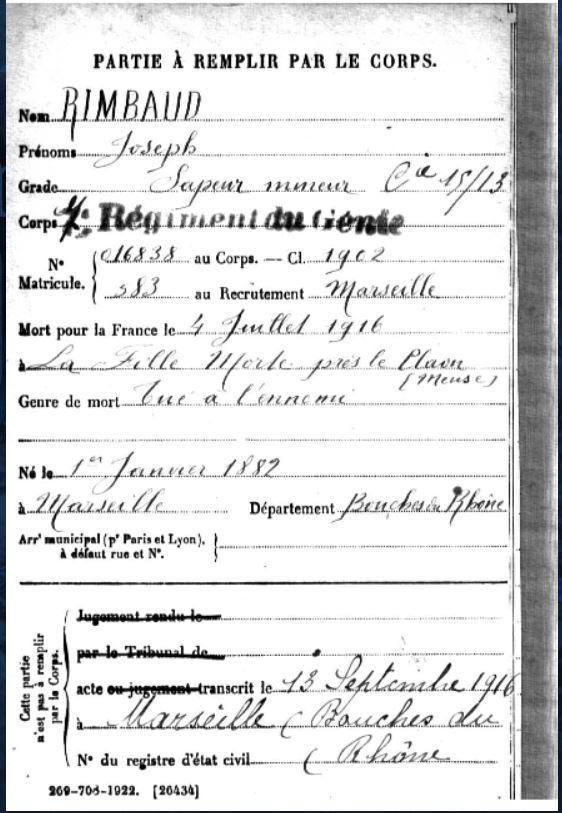 PARTIE À REMPLIR PAR LE CORPS.
Nom RIMBAUD
Prénoms Joseph
Grade Sapeur mineur Cie 15/13
Corps 7e Régiment du Génie
N° Matricule. 016838 au Corps. — Cl. 1902
983 au Recrutement Marseille
Mort pour la France le 4 Juillet 1916
à La Fille Morte près le Claon
(Meuse)
Genre de mort Tué à l'ennemi
Né le 1er Janvier 1882
à Marseille Département Bouches du Rhône
Arrt municipal (pr Paris et Lyon),
à défaut rue et N°.
Cette partie
n'est pas à remplir
par le Corps.
Jugement rendu le
par le Tribunal de
acte ou jugement transcrit le 13 Septembre 1916
à Marseille (Bouches du
N° du registre d'état civil (Rhône
269-708-1922. [26434]